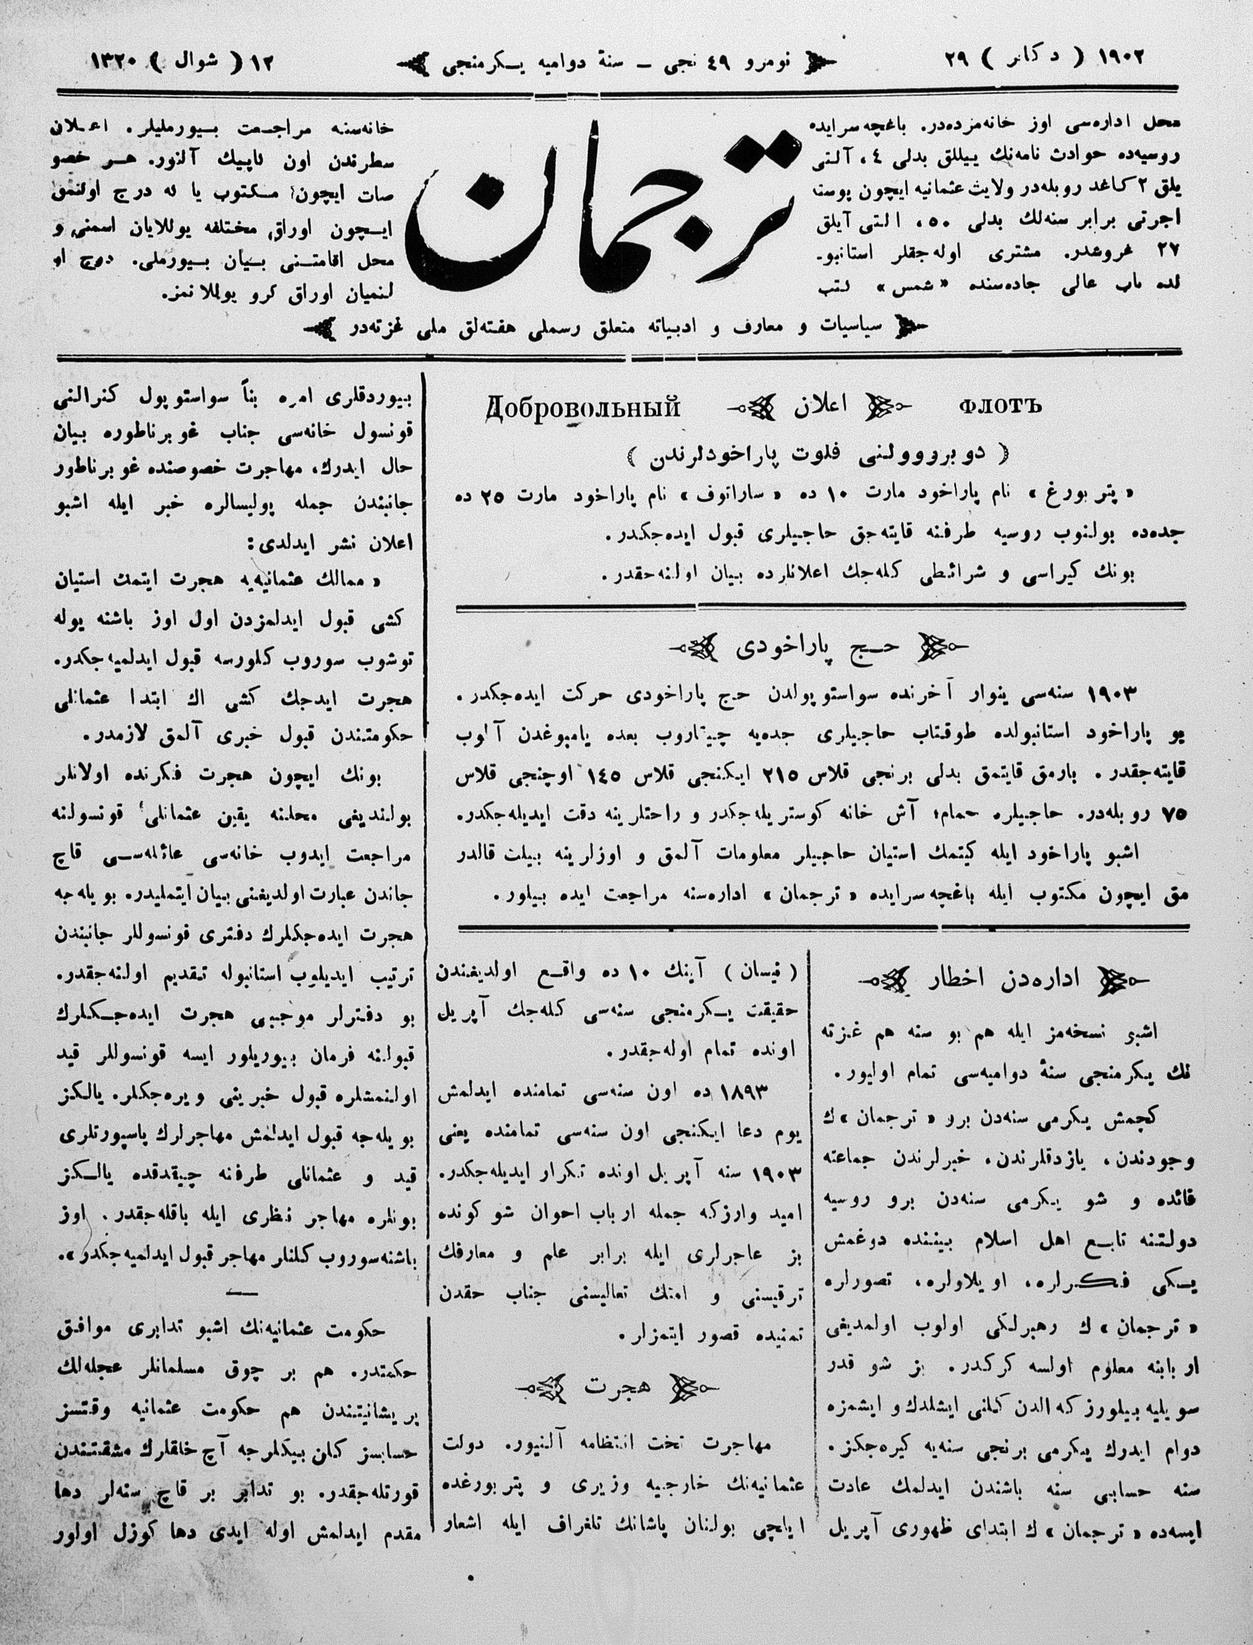 ١٩٠٢ ( دكابر ) ٢٩
نومرو ٤٩ نجى ـ سنۀ دواميه يكرمنجى
١٢ ( شوال ) ١٣٢٠
محل اداره‌سى اوز خانه‌مزده‌در. باغچه‌سرايده
روسيه‌ده حوادث نامه‌نك ييللق بدلى ٤، آلتى
يلق ٢ كاغد روبله‌در ولايت عثمانيه ايچون پوسته
اجرتى برابر سنه‌لك بدلى ٥٠، التى آيلق
٢٧ غروشدر. مشترى اوله‌جقلر استانبو-
لده باب عالى جاده‌سنده «شمس» كتب
ترجمان
خانه‌سنه مراجعت بيورمليلر. اعلان
سطرندن اون كاپيك آلنور. هر خصو
صات ايچون مكتوب يا كه درج اولنمق
ايچون اوراق مختلفه يوللايان اسمنى و
محل اقامتنى بيان بيورملى. درج او
لنميان اوراق كرو يوللانمز.
سياسيات و معارف و ادبياته متعلق رسملى هفته‌لق ملى غزته‌در
Добровольный اعلان ФЛОТЪ
( دوبروولنى فلوت پاراخودلرندن )
«پتربورغ» نام پاراخود مارت ١٠ ده «ساراتوف» نام پاراخود مارت ٢٥ ده
جده‌ده بولنوب روسيه طرفنه قايته‌جق حاجيلرى قبول ايده‌جكدر.
بونك كيراسى و شرائطى كله‌جك اعلانلرده بيان اولنه‌جقدر.
حج پاراخودى
١٩٠٣ سنه‌سى ينوار آخرنده سواستوپولدن حج پاراخودى حركت ايده‌جكدر.
بو پاراخود استانبولده طوقتاب حاجيلرى جده‌يه چيقاروب بعده يامبوغدن آلوب
قايته‌جقدر. بارمق قايتمق بدلى برنجى قلاس ٢١٥ ايكنجى قلاس ١٤٥ اوچنجى قلاس
٧٥ روبله‌در. حاجيلره حمام، آش خانه كوستريله‌جكدر و راحتلرينه دقت ايديله‌جكدر.
اشبو پاراخود ايله كيتمك استيان حاجيلر معلومات آلمق و اوزلرينه بيلت قالدر
مق ايچون مكتوب ايله باغچه‌سرايده «ترجمان» اداره‌سنه مراجعت ايده بيلور.
اداره‌دن اخطار
اشبو نسخه‌مز ايله هم بو سنه هم غزته
نك يكرمنجى سنۀ دواميه‌سى تمام اوليور.
كچمش يكرمى سنه‌دن برو «ترجمان»ك
وجودندن، يازدقلرندن، خبرلرندن جماعته
فائده و شو يكرمى سنه‌دن برو روسيه
دولتنه تابع اهل اسلام بيننده دوغمش
يكى فكرلره، اويلاولره، تصورلره
«ترجمان»ك رهبرلكى اولوب اولمديغى
اربابنه معلوم اولسه كركدر. بز شو قدر
سويليه بيلورز كه الدن كلنى ايشلدك و ايشمزه
دوام ايدرك يكرمى برنجى سنه‌يه كيره‌جكز.
سنه حسابى سنه باشندن ايدلمك عادت
ايسه‌ده «ترجمان»ك ابتداى ظهورى آپريل
(نيسان) آينك ١٠ ده واقع اولديغندن
حقيقت يكرمنجى سنه‌سى كله‌جك آپريل
اونده تمام اوله‌جقدر.
١٨٩٣ ده اون سنه‌سى تمامنده ايدلمش
يوم دعا ايكنجى اون سنه‌سى تمامنده يعنى
١٩٠٣ سنه آپريل اونده تكرار ايديله‌جكدر.
اميد وارزكه جمله ارباب احوان شو كونده
بز عاجزلرى ايله برابر علم و معارفك
ترقيسنى و امتك تعاليسنى جناب حقدن
تمنيده قصور ايتمزلر.
هجرت
مهاجرت تحت انتظامه آلنيور. دولت
عثمانيه‌نك خارجيه وزيرى و پتربورغده
ايلچى بولنان پاشانك تلغراف ايله اشعار
بيوردقلرى امره بناً سواستوپول كنرالنى
قونسول خانه‌سى جناب غوبرناطوره بيان
حال ايدرك، مهاجرت خصوصنده غوبرناطور
جانبندن جمله پوليسالره خبر ايله اشبو
اعلان نشر ايدلدى:
«ممالك عثمانيه‌يه هجرت ايتمك استيان
كشى قبول ايدلمزدن اول اوز باشنه يوله
توشوب سوروب كلورسه قبول ايدلميه‌جكدر.
هجرت ايدجك كشى اك ابتدا عثمانلى
حكومتندن قبول خبرى آلمق لازمدر.
بونك ايچون هجرت فكرنده اولانلر
بولنديغى محلنه يقين عثمانلى قونسولنه
مراجعت ايدوب خانه‌سى عائله‌سى قاچ
جاندن عبارت اولديغنى بيان ايتمليدر. بويله‌جه
هجرت ايده‌جكلرك دفترى قونسوللر جانبندن
ترتيب ايديلوب استانبوله تقديم اولنه‌جقدر.
بو دفترلر موجبى هجرت ايده‌جكلرك
قبولنه فرمان بيوريلور ايسه قونسوللر قيد
اولنمشلره قبول خبرينى ويره‌جكلر. يالكز
بويله‌جه قبول ايدلمش مهاجرلرك پاسپورتلرى
قيد و عثمانلى طرفنه چيقدقده يالكز
بونلره مهاجر نظرى ايله باقله‌جقدر. اوز
باشنه سوروب كلنلر مهاجر قبول ايدلميه‌جكدر».
حكومت عثمانيه‌نك اشبو تدابرى موافق
حكمتدر. هم بر چوق مسلمانلر عجله‌لك
پريشانيتندن هم حكومت عثمانيه وقتسز
حسابسز كلن بيكلرجه آچ خلقلرك مشقتندن
قورتله‌جقدر. بو تدابر بر قاچ سنه‌لر دها
مقدم ايدلمش اوله ايدى دها كوزل اولور